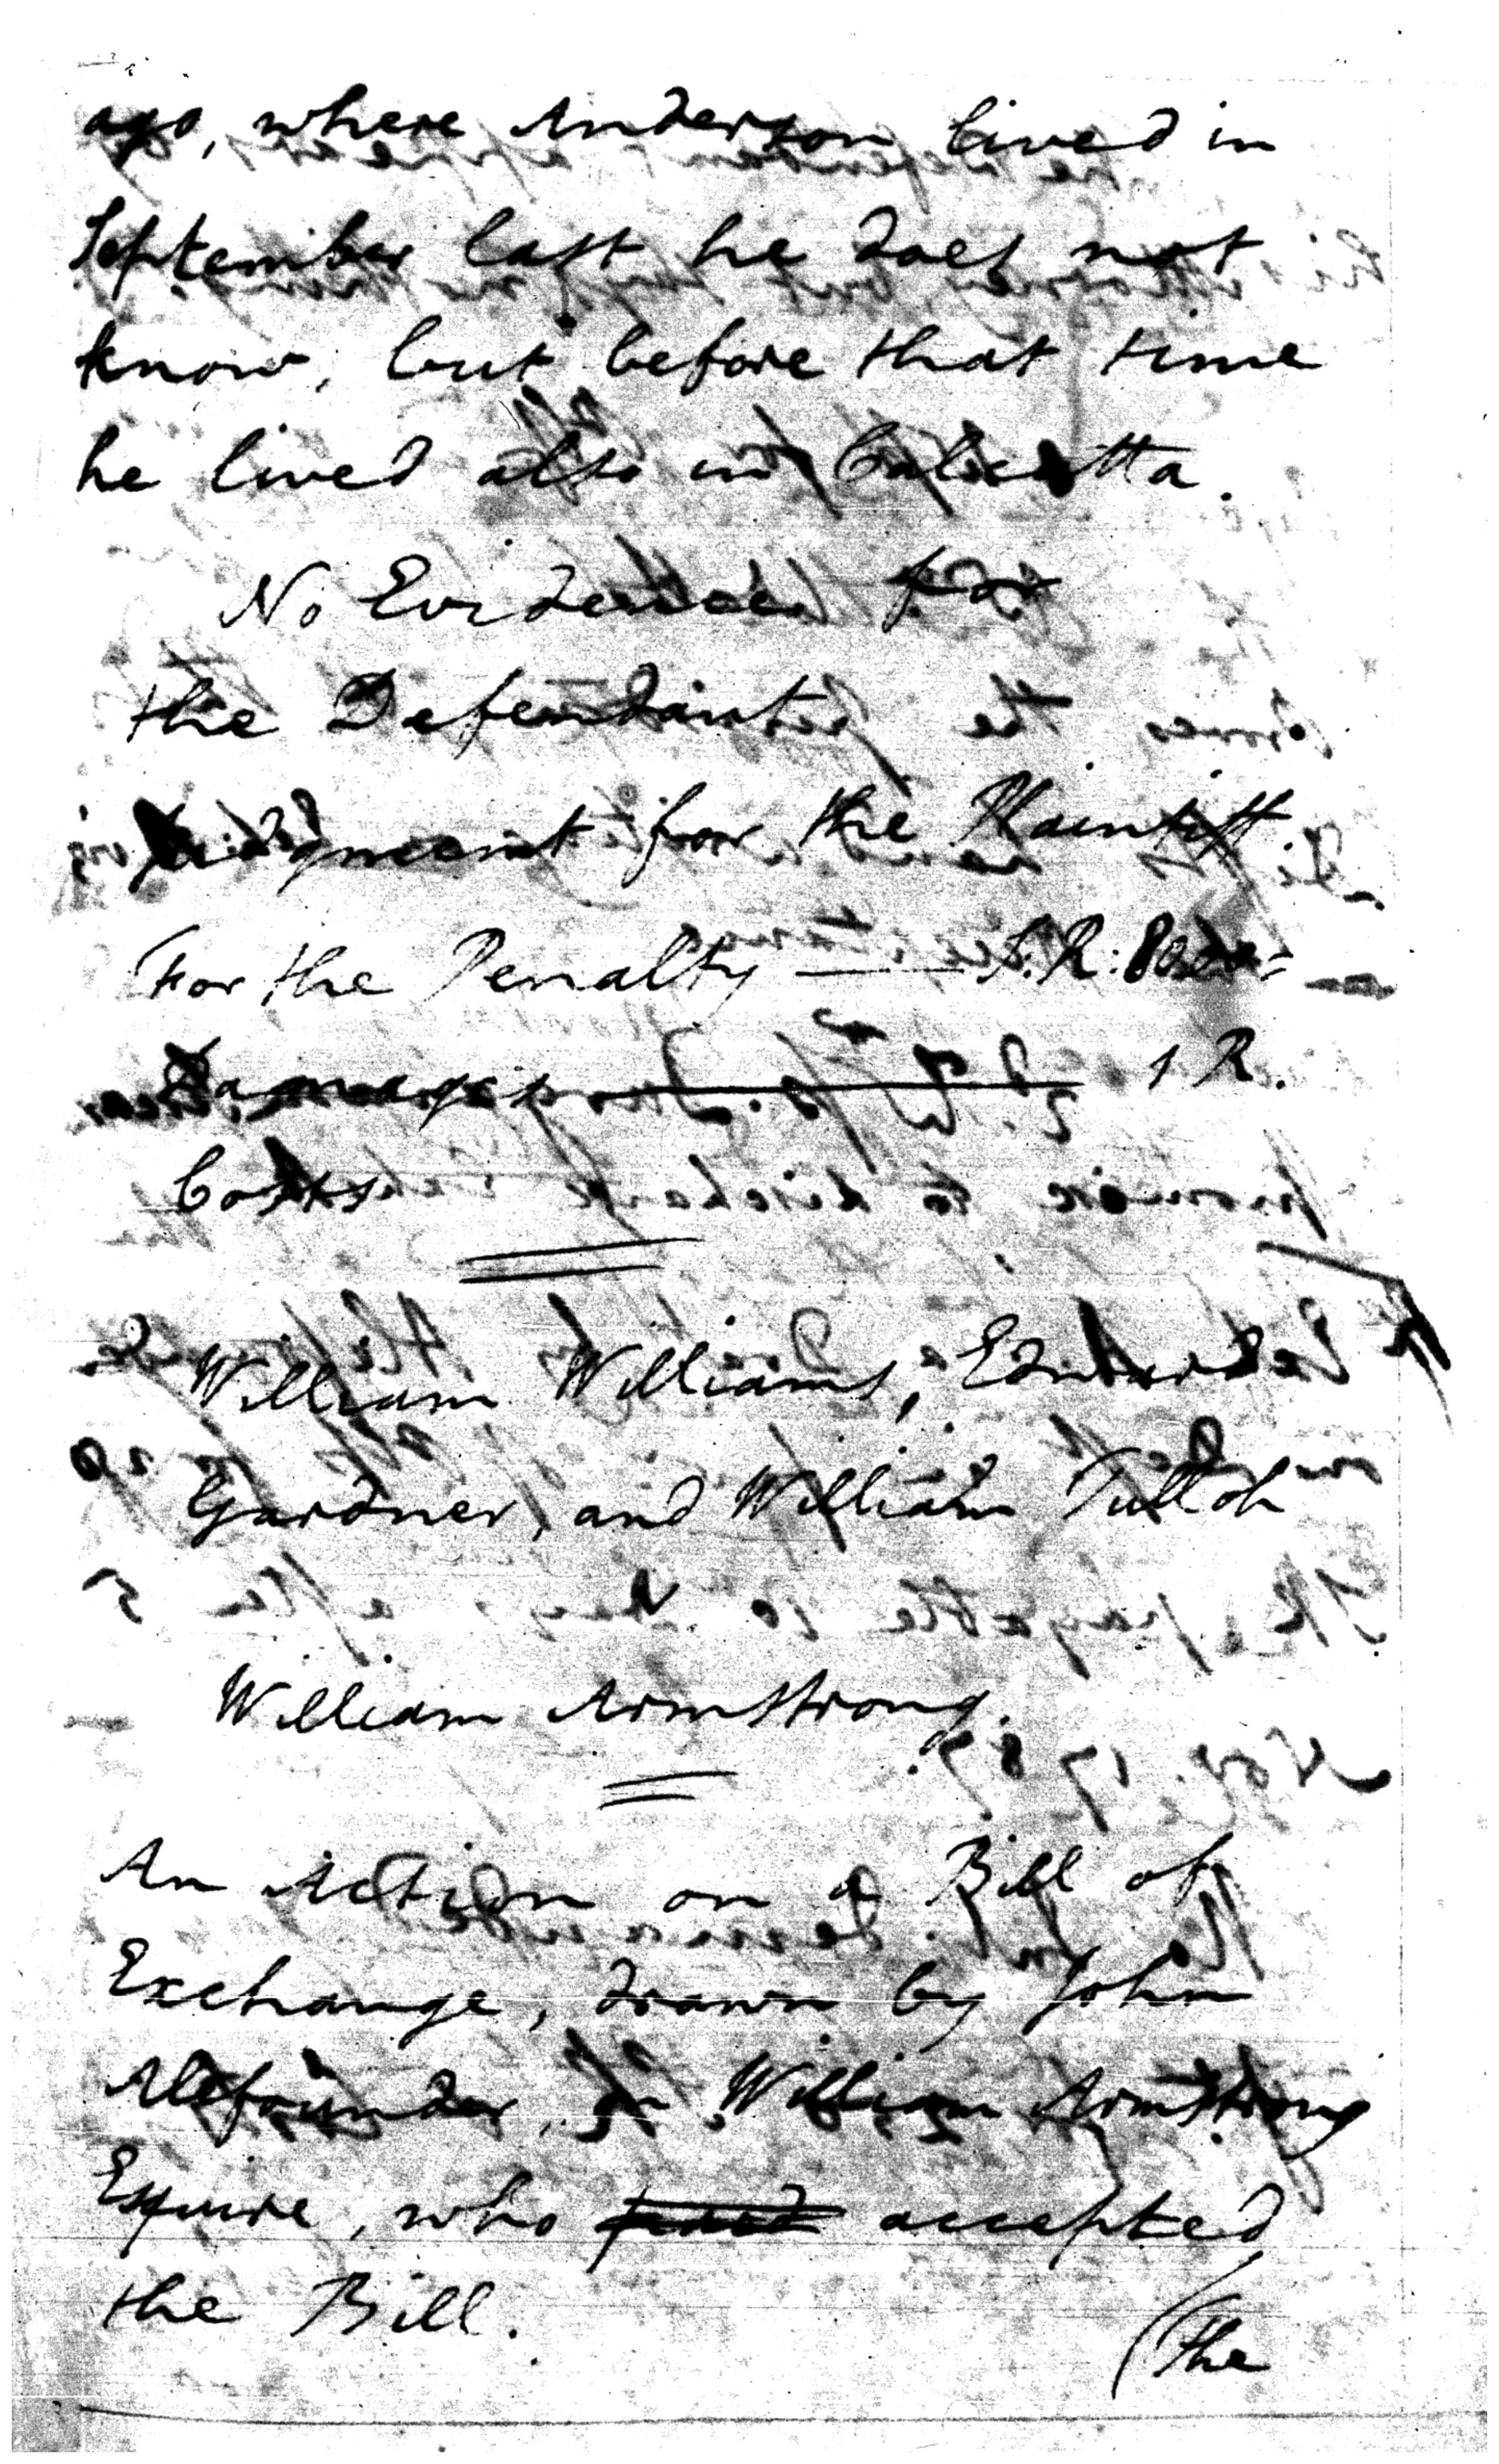 ago, where Anderson lived in
September last he does not
know, but before that time
he lived also in Calcutta.
No Evidence for
the Defendant
Judgment for the Plaintiff
For the Penalty — S.R:
Damages — 1 R.
Costs
William Williams, Edward
Gardner, and William Tulloh
v
William Armstrong.
An Action on a Bill of
Exchange, drawn by John
Alefounder, on William Armstrong
Esquire, who accepted
the Bill.
(The